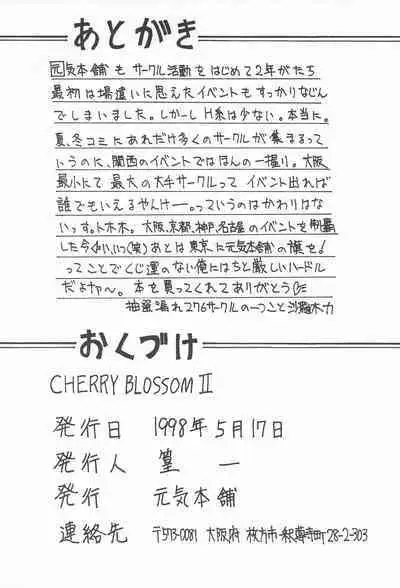 あとがき
元気本舗もサークル活動をはじめて2年がたち
最初は場違いに思えたイベントもすっかりなじん
でしまいました。しかーしH系は少ない。本当に。
夏、冬コミにあれだけ多くのサークルが集まるって
いうのに、関西のイベントではほんの一握り。大阪
最小にて最大の大手サークルってイベント出れば
誰でもいえるやんけー。っていうのはかわりはな
いっす。トホホ。大阪、京都、神戸、名古屋のイベントを制覇
した今(笑)あとは東京に元気本舗の旗を!
ってことでくじ運のない俺にはちと厳しいハードル
だよナァ〜。本を買ってくれてありがとう
抽選漏れ276サークルの一つこと
おくづけ
CHERRY BLOSSOM II
発行日 1998年5月17日
発行人 篁 一
発行 元気本舗
連絡先 〒573-0081 大阪府 枚方市釈尊寺町28-2-303